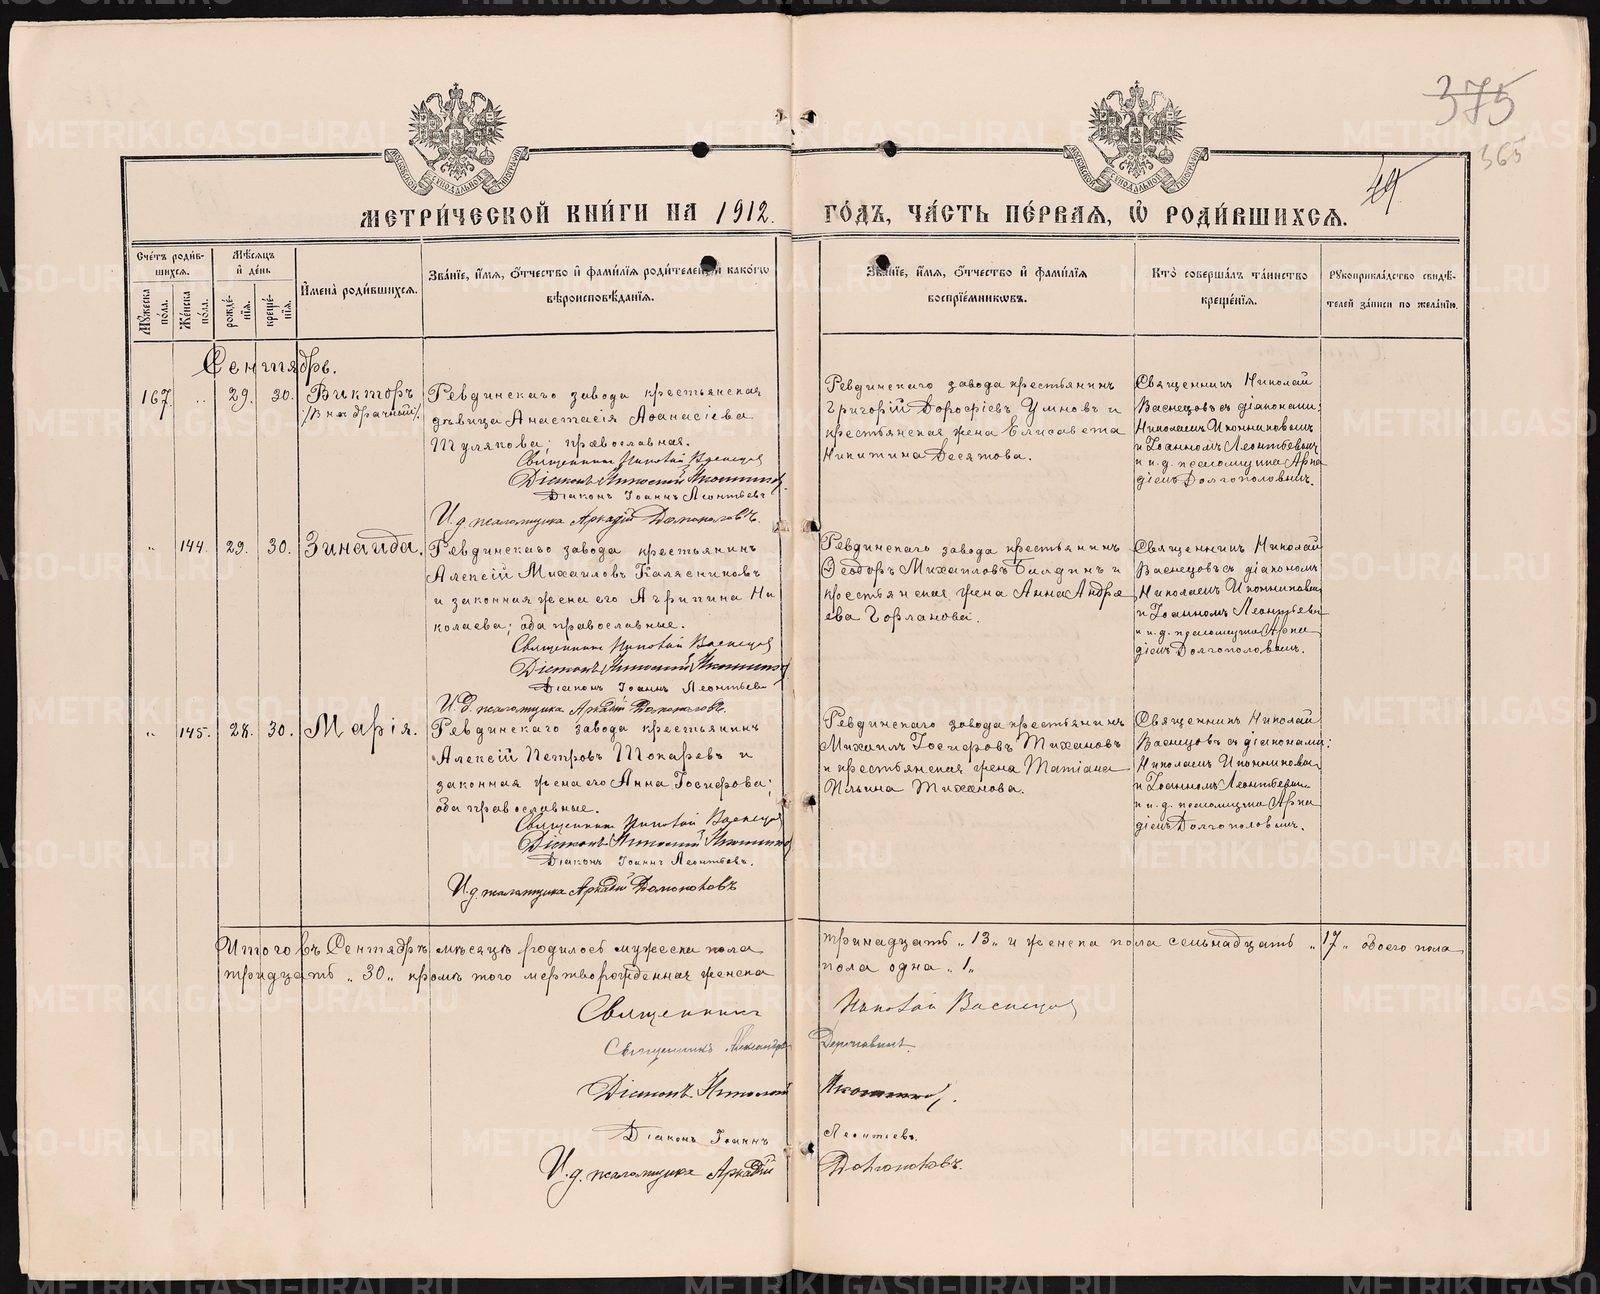 375
365
МЕТРИ́ЧЕСКОЙ КНИ́ГИ НА 1912.
ГО́ДЪ, ЧА́СТЬ ПЕ́РВАЯ, Ѡ҆ РОДИ́ВШИХСѦ.
Сче́тъ роди́в-
шихся.
Мѣ́сяцъ
и҆ де́нь
Мꙋ́жеска
по́ла.
Же́нска
по́ла.
рожде́-
нїя.
креще́-
нїя.
И҆мена̀ роди́вшихся.
Зва́нїе, и҆́мя, ѻ҆́тчество и҆ фами́лїя роди́телей, и҆ како́гѡ
вѣроисповѣ́данїя.
Зва́нїе, и҆́мя, ѻ҆́тчество и҆ фами́лїя
воспрїе́мникѡвъ.
Кто̀ соверша́лъ та́инство
креще́нїя.
Рꙋкоприкла́дство свидѣ́-
телей за́писи по жела́нїю.
Сентябрь.
167. „ 29. 30. Викторъ
/Внебрачный/.
Ревдинскаго завода крестьянская
дѣвица Анастасія Аѳанасіева
Тулякова; православная.
Священникъ Николай Васнецовъ
Діаконъ Николай Иконниковъ
Діаконъ Іоаннъ Леонтьевъ
И.д. псаломщика Аркадій Долгополовъ.
Ревдинскаго завода крестьянинъ
Григорій Дороѳіевъ Умновъ и
крестьянская жена Елисавета
Никитина Десятова.
Священникъ Николай
Васнецовъ съ діаконами:
Николаемъ Иконниковымъ
и Іоанномъ Леонтьевымъ
и и.д. псаломщика Арка
діемъ Долгополовымъ.
„ 144. 29. 30. Зинаида.
Ревдинскаго завода крестьянинъ
Алексій Михаиловъ Калясниковъ
и законная жена его Агрипина Ни
колаева; оба православные.
Священникъ Николай Васнецовъ
Діаконъ Николай Иконниковъ
Діаконъ Іоаннъ Леонтьевъ
И.д. псаломщика Аркадій Долгополовъ.
Ревдинскаго завода крестьянинъ
Ѳеодоръ Михаиловъ и
крестьянская жена Анна Андре
ева Горланова.
Священникъ Николай
Васнецовъ съ діакономъ
Николаемъ Иконниковы
и Іоанномъ Леонтьевы
и и.д. псаломщика Арка
діемъ Долгополовымъ.
„ 145. 28. 30. Марія.
Ревдинскаго завода крестьянинъ
Алексій Петровъ Токаревъ и
законная жена его Анна Іосифова;
оба православные.
Священникъ Николай Васнецовъ
Діаконъ Николай Иконниковъ
Діаконъ Іоаннъ Леонтьевъ.
И.д. псаломщика Аркадій Долгополовъ
Ревдинскаго завода крестьянинъ
Михаилъ Іосифовъ Тихановъ
и крестьянская жена Татіана
Ильина Тиханова.
Священникъ Николай
Васнецовъ съ діаконами:
Николаемъ Иконникова
и Іоанномъ Леонтьевым
и и.д. псаломщика Арка
діемъ Долгополовымъ.
Итого въ Сентябрѣ мѣсяцѣ родилось мужеска пола тринадцать „13„ и женска пола семьнадцать „17„ обоего пола
тридцать „30„ кромѣ того мертворожденная женска пола одна „1„
Священникъ Николай Васнецовъ
Священникъ Александръ
Діаконъ Николай Иконниковъ.
Діаконъ Іоаннъ Леонтьевъ.
И.д. псаломщика Аркадій Долгополовъ.
METRIKI.GASO-URAL.RU